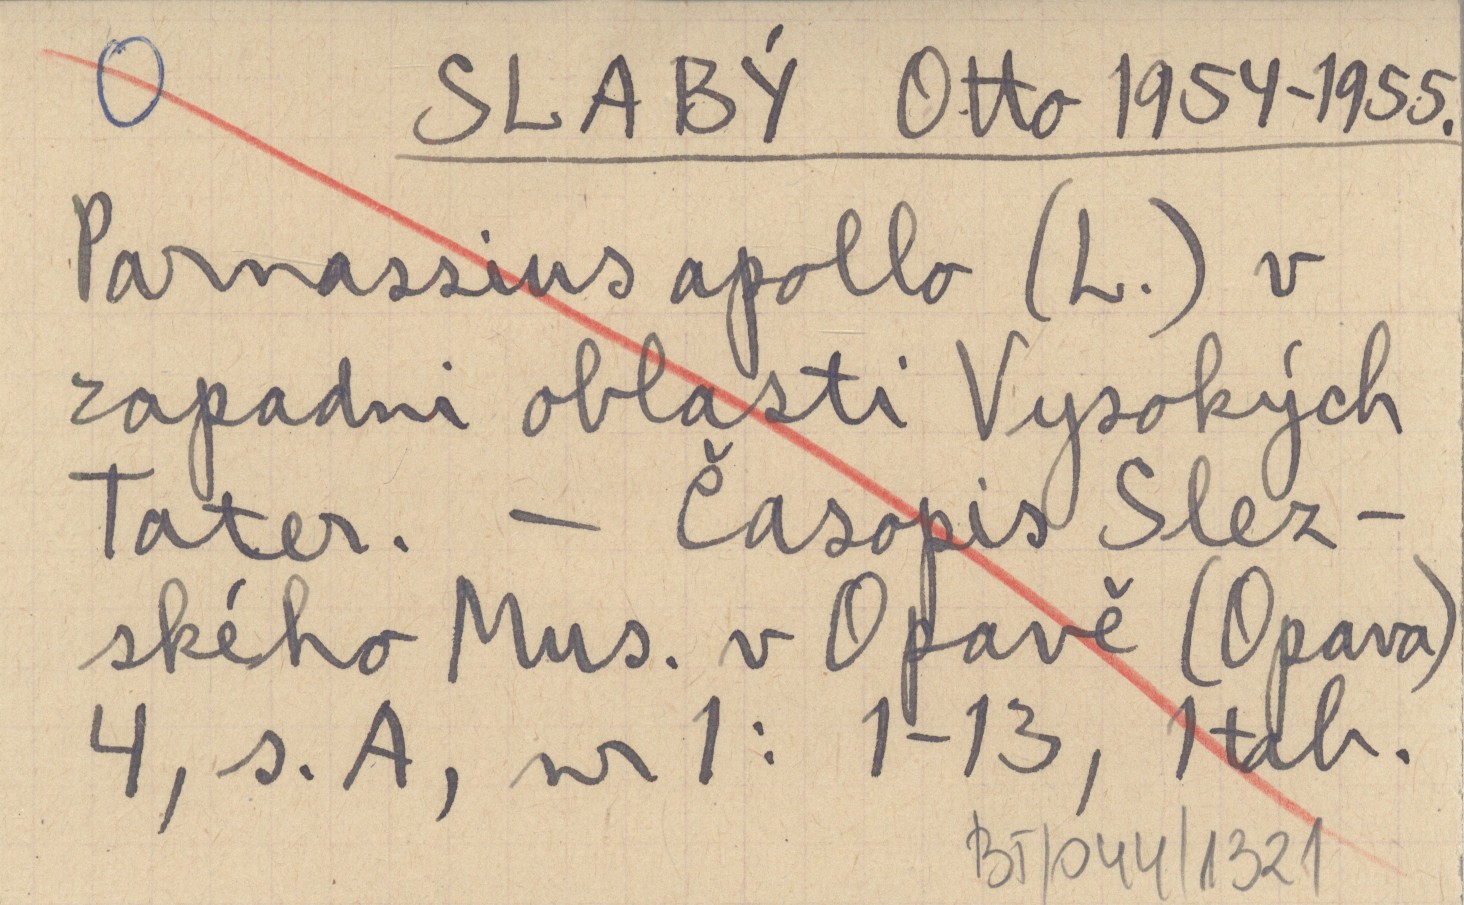 O SLABÝ Otto 1954-1955.
Parnassius apollo (L.) v
zapadni oblasti Vysokých
Tater. — Časopis Slez-
ského Mus. v Opavě (Opava)
4, s. A, nr 1: 1-13, 1 tab.
BT/044/1321